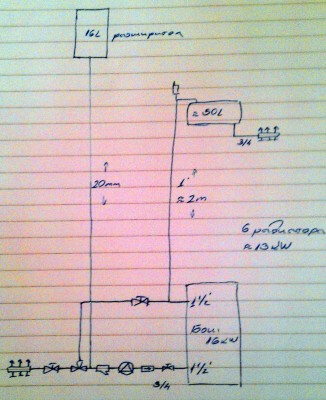 16L разширител
≈ 50L
3/4
20mm
1"
≈ 2m
6 радиатора
≈ 13kW
1 1/2"
16kW
1 1/2"
3/4